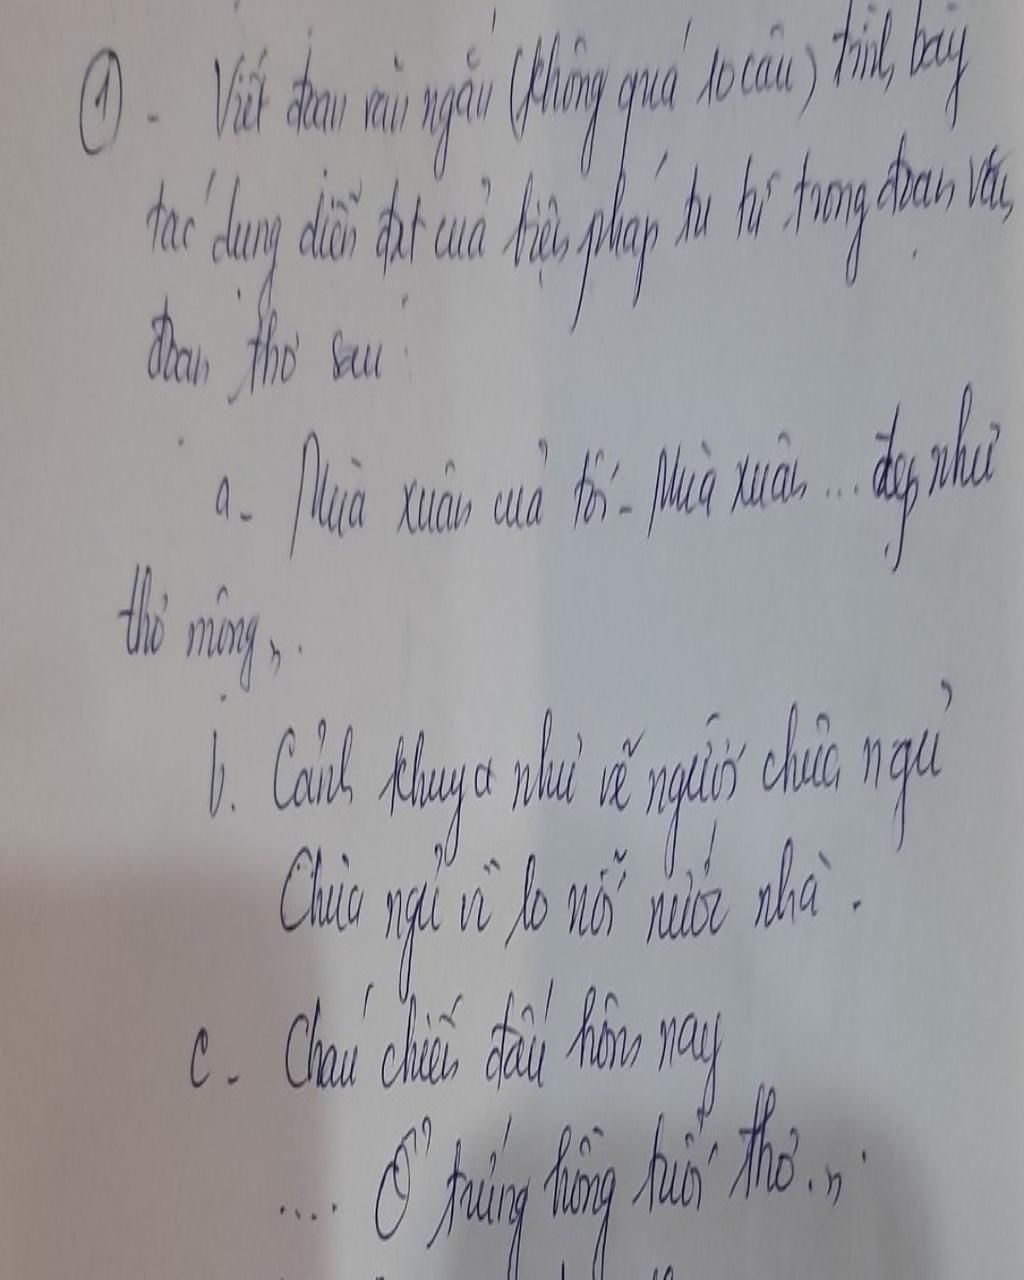 ① - Viết đoạn văn ngắn (không quá 10 câu) trình bày
tác dụng diễn đạt của biện pháp tu từ trong đoạn văn,
đoạn thơ sau:
a - Mùa xuân của tôi - Mùa xuân ... đẹp như
thơ mộng".
b. Cảnh khuya như vẽ người chưa ngủ
Chưa ngủ vì lo nỗi nước nhà.
c - Cháu chiến đấu hôm nay
.... Ổ trứng hồng tuổi thơ.".